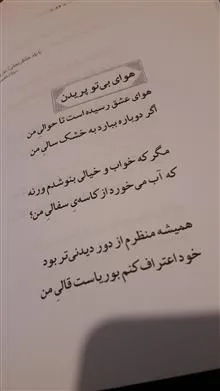 هوای بی‌تو پریدن
هوای عشق رسیده است تا حوالیِ من
اگر دوباره ببارد به خشک سالیِ من
مگر که خواب و خیالی بنوشدم ورنه
که آب می‌خورد از کاسه‌یِ سفالیِ من؟
همیشه منظرم از دور دیدنی‌تر بود
خود اعتراف کنم بوریاست قالیِ من